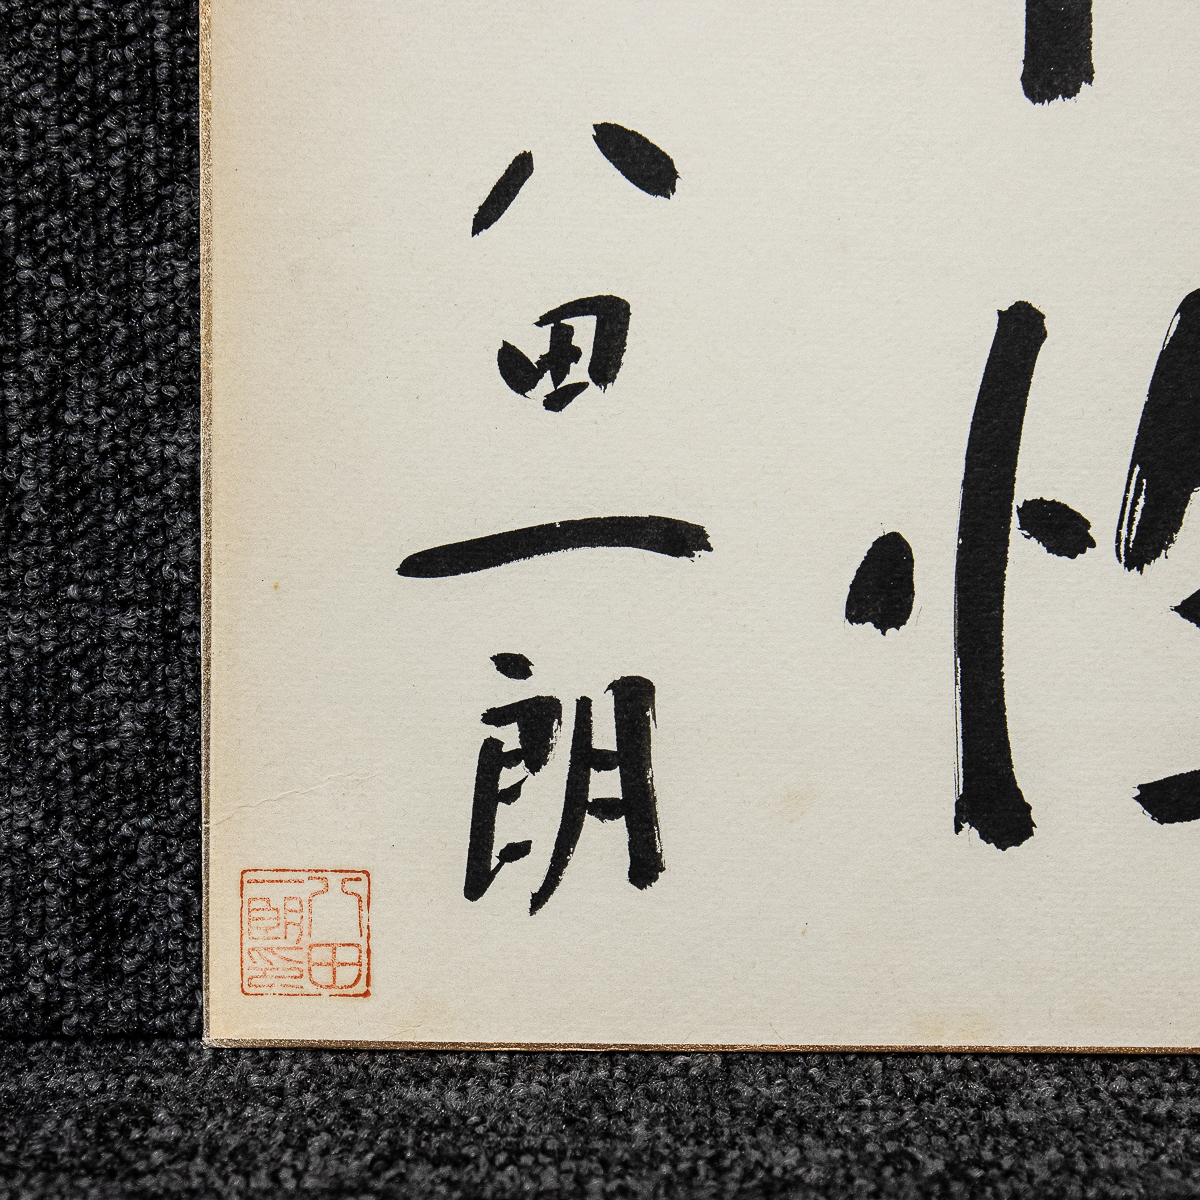 八田一朗
八田一朗印